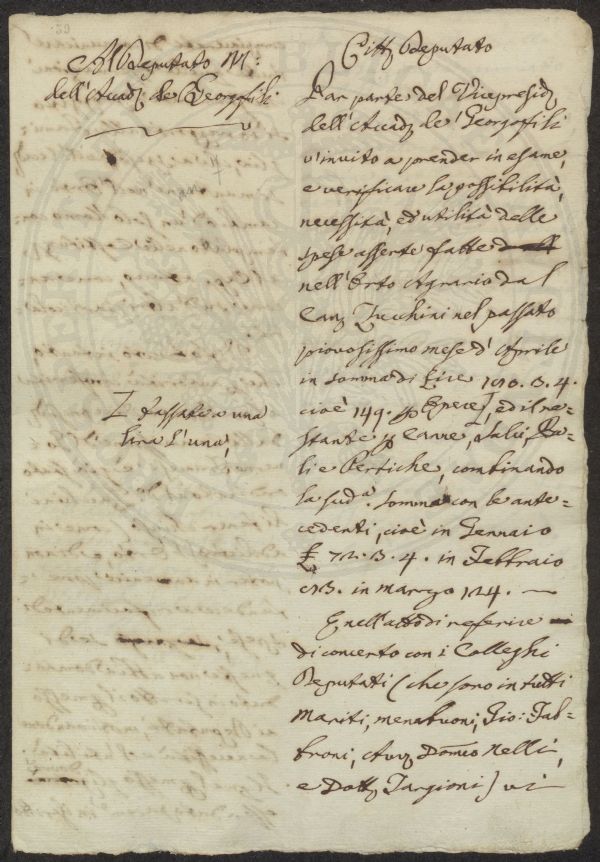 Al Deputato M:
dell'Accad. de Georgofili
I tassate a una
lira l'una,
Citt. Deputato
Par parte del Vicepresid.
dell'Accad. de' Georgofili
v'invito a prender in esame,
e verificare la possibilità,
necessità, ed utilità delle
spese asserte fatte
nell'Orto Agrario dal
Can. Zucchini nel passato
piovosissimo mese d'Aprile
in somma di Lire 190. 3. 4.
cioè 149. p. Opere I, ed il re-
stante p. Canne, Salci, Pa-
li e Pertiche, combinando
la sud.a somma con le ante-
cedenti, cioè in Gennaio
£ 72. 3. 4. in Febbraio
93. in marzo 124. —
E nell'atto di referire
di concerto con i Colleghi
Deputati (che sono in tutti
Mariti, Menabuoni, Gio: Fab-
broni, Avv. Dom.co Nelli,
e Dott. Targioni) vi